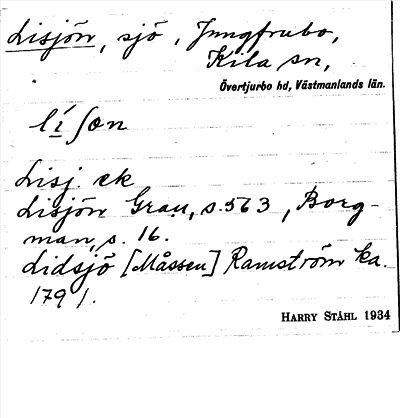 Lisjön, sjö, Jungfrubo,
Kila sn,
Övertjurbo hd, Västmanlands län.
líſon
Lisj. ek
Lisjön Grau, s. 563, Borg-
man, s. 16.
Lidsjö [Måssen] Ramström ka.
1791.
HARRY STÅHL 1934